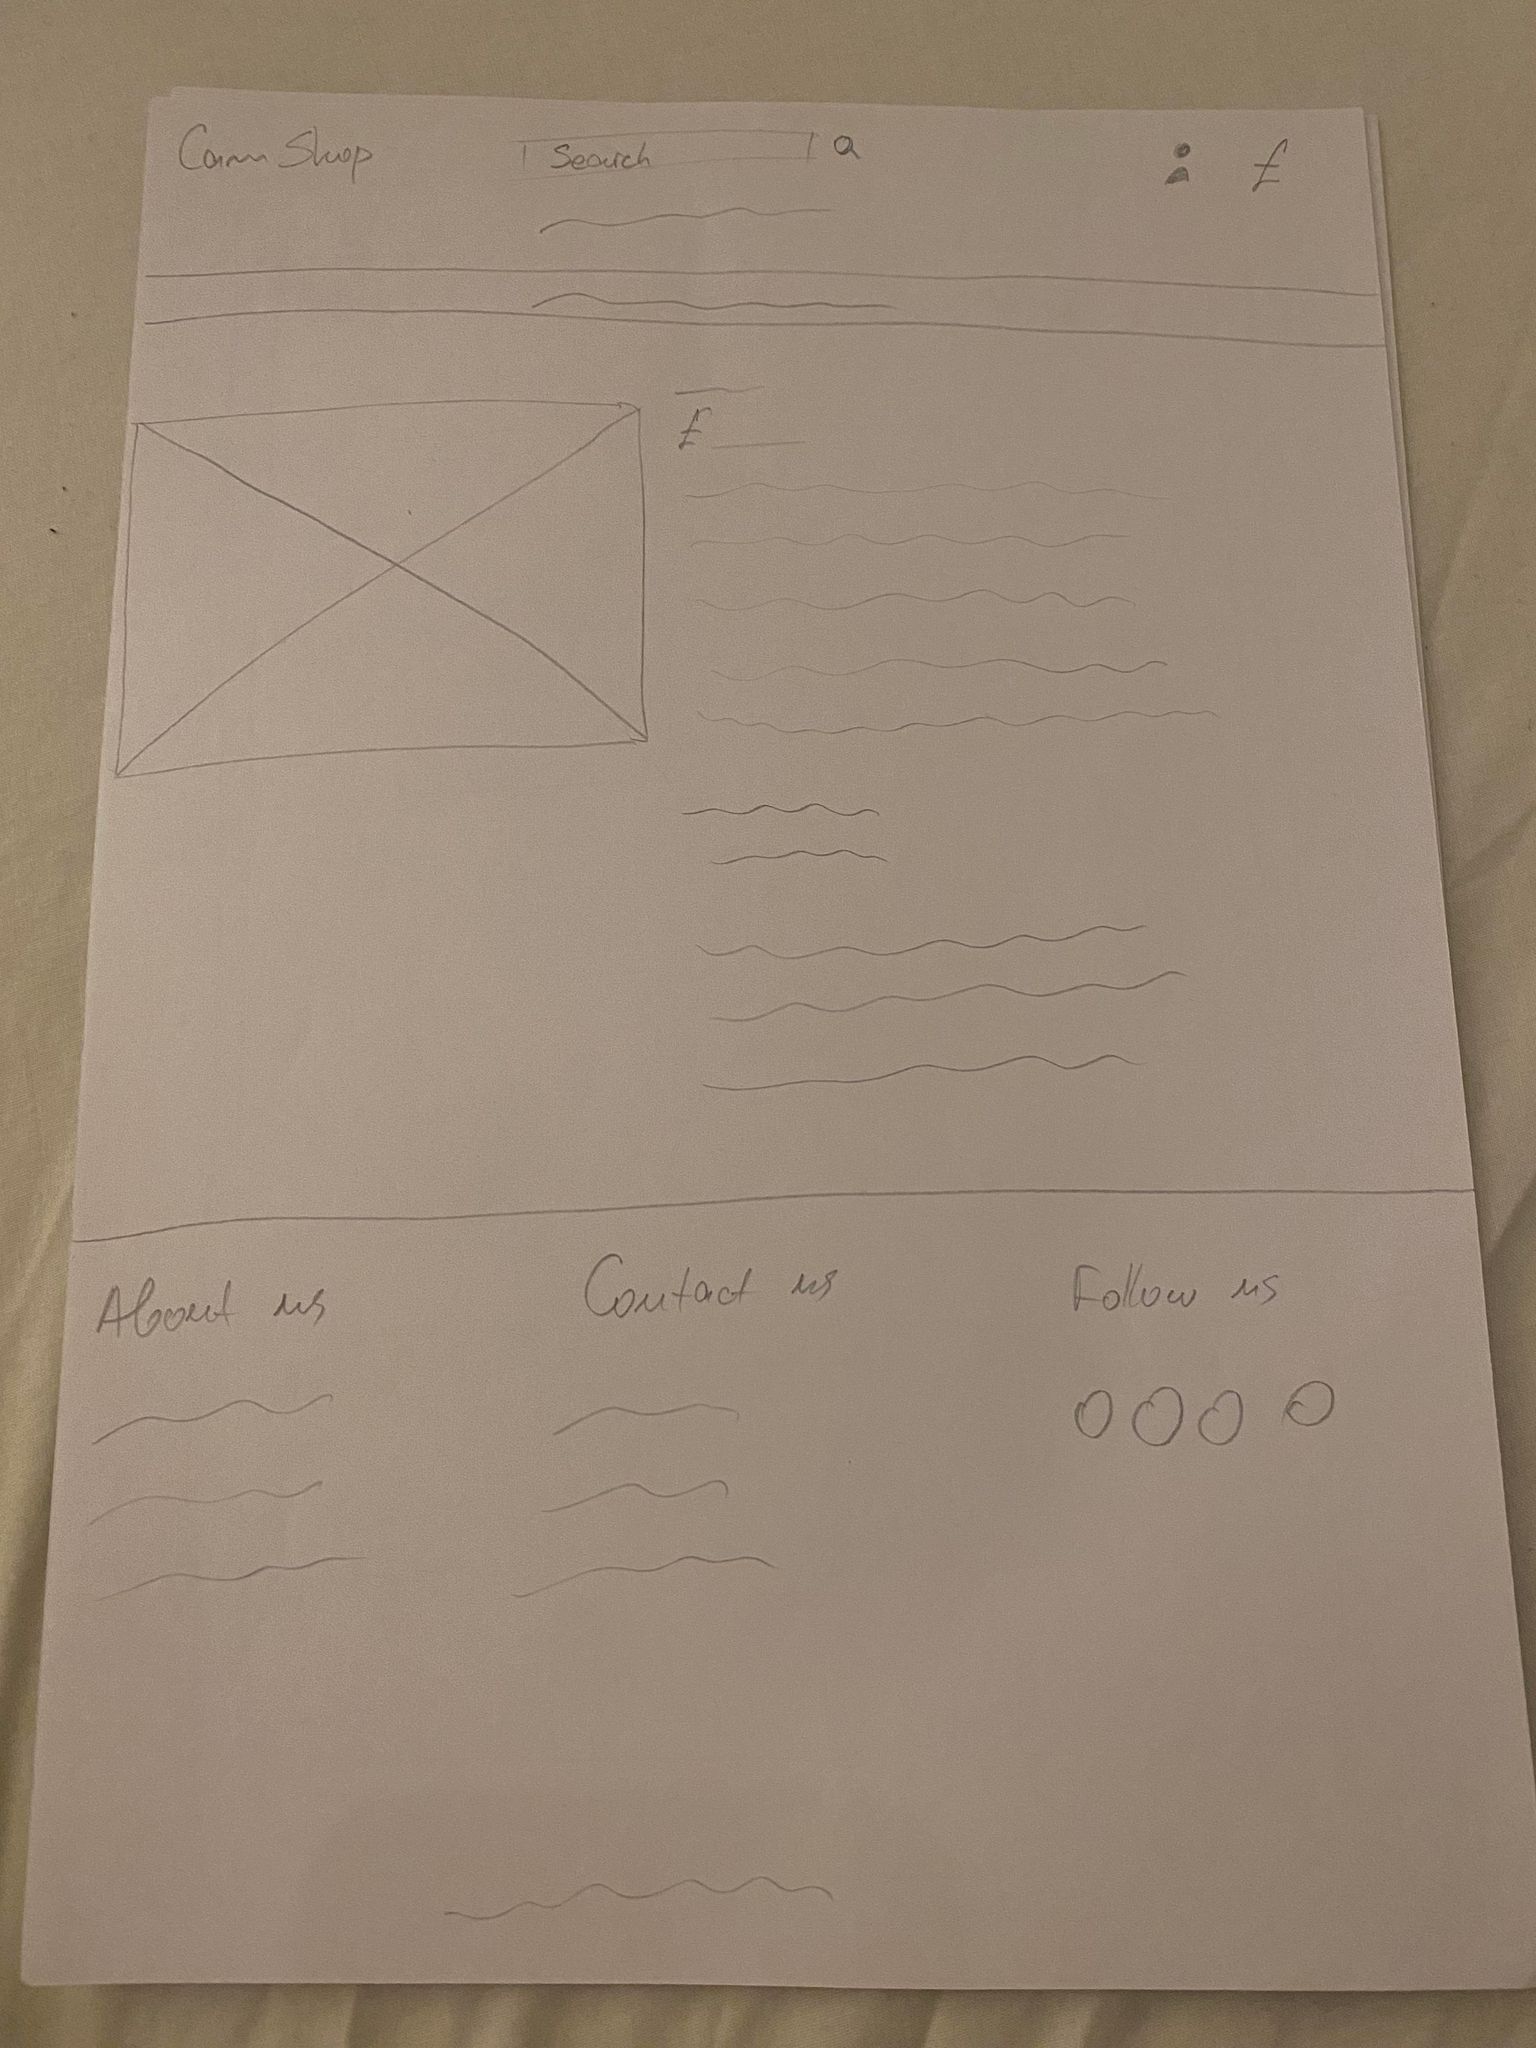 Cam Shop
Search
£
£
About us
Contact us
Follow us